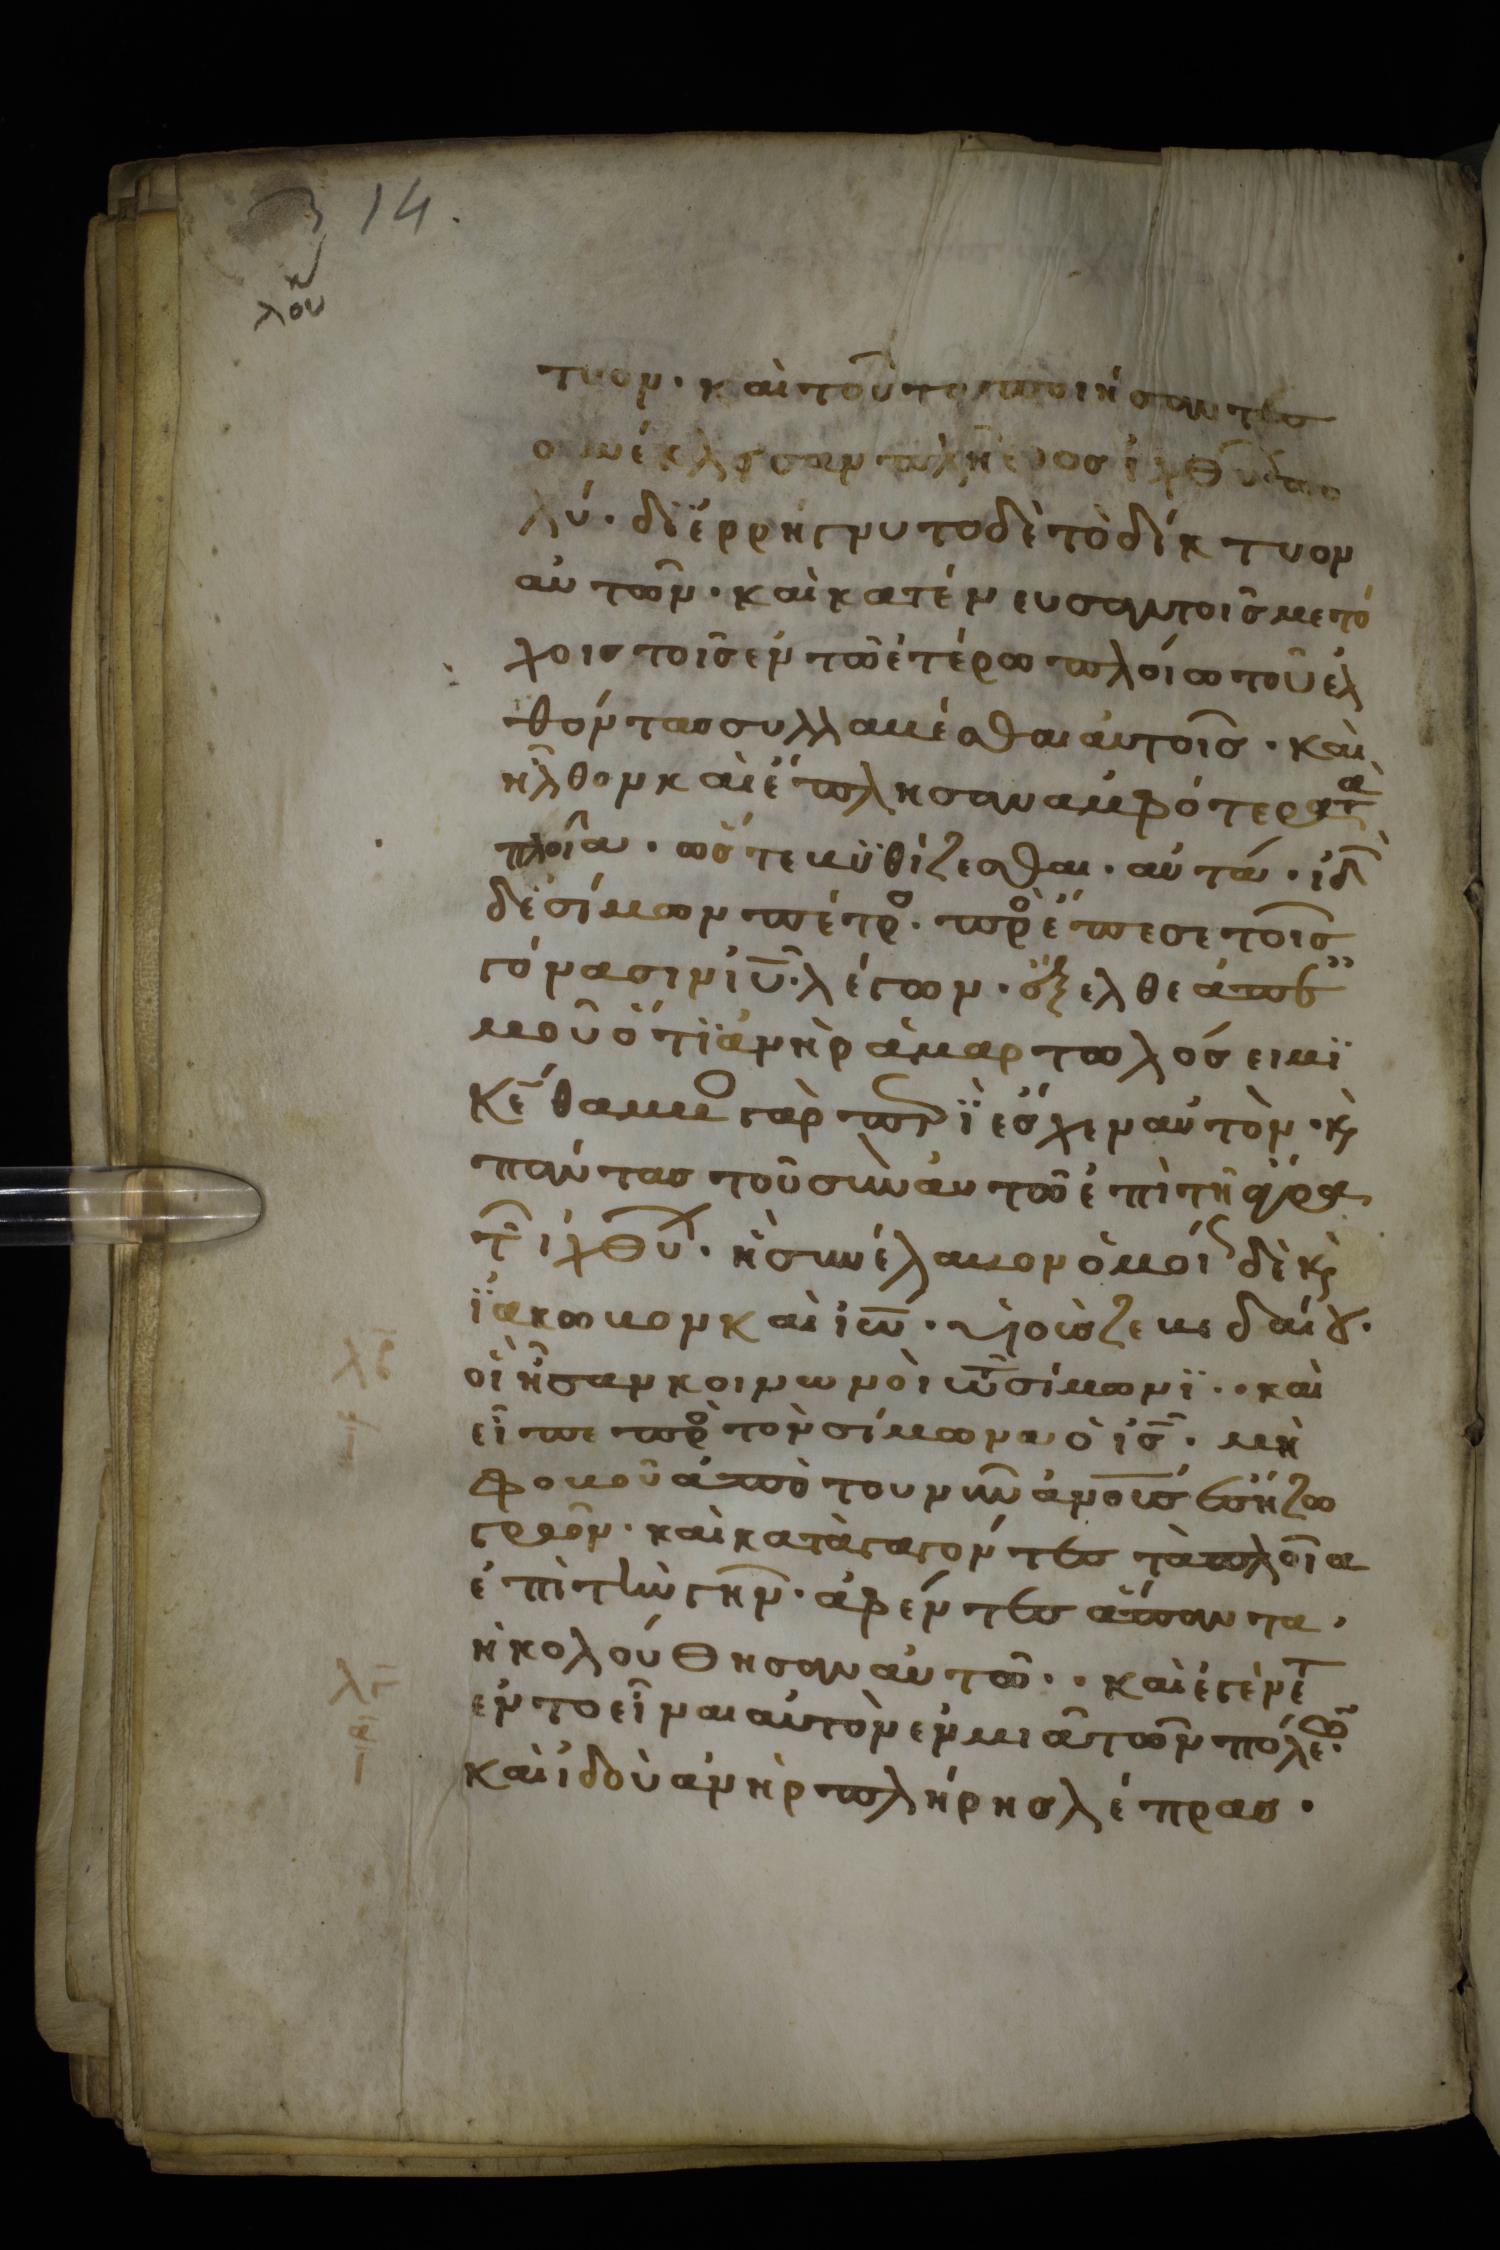 14.
λου
τυον· καὶ τοῦτο ποιήσαντες
συνέκλεισαν πλῆθος ἰχθύων πο
λύ· διἔρρήγνυτο δὲ τὸ δίκτυον
αὐτῶν· καὶ κατένευσαν τοῖς μετό
χοις τοῖς ἐν τῶ ἑτέρω πλοίω τοῦ ἐλ
θόντας συλλαβέσθαι αὐτοῖς· καὶ
ἦλθον καὶ ἔπλησαν ἀμφότερα τὰ
πλοῖα· ὥστε βϋθίζεσθαι· αὐτά· ἰδὼ
δὲ σίμων πέτρο· προ ἔπεσε τοῖς
γόνασιν ἰ̅υ̅· λέγων· ἔξελθε ἀπ ἐ
μοῦ ὅτϊ ἀνὴρ ἁμαρτωλός εἰμϊ
κ̅ε̅ θάμβο γὰρ περϊἔσχεν αὐτὸν· κ
πάντας τοὺς σὺν αὐτῶ ἐπὶ τῆ ἄγρα
τ ἰχθύ· ἡ συνέλαβον ὁμοί δὲ κ
ϊάκωβον καὶ ἰω̅· υἱοὺς ζεβεδαίου·
οἳ ἦσαν κοινωνοὶ τῶ σίμωνϊ·· καὶ
εἶπε προ τὸν σίμωνα ὁ ι̅ς̅· μὴ
φοβοῦ ἀπὸ του νῦν ἀνο̅υ̅ς ἔση ζω
γρῶν· καὶ καταγαγόντες τὰ πλοῖα
ἐπὶ τὴν γῆν· ἀφέντες ἅπαντα,
ἠκολούθησαν αὐτῶ·· καὶ ἐγένετ
ἐν το εἶναι αὐτὸν ἐν μιᾶ τῶν πόλεων·
καὶ ἰδοὺ ἀνὴρ πλήρης λέπρας·